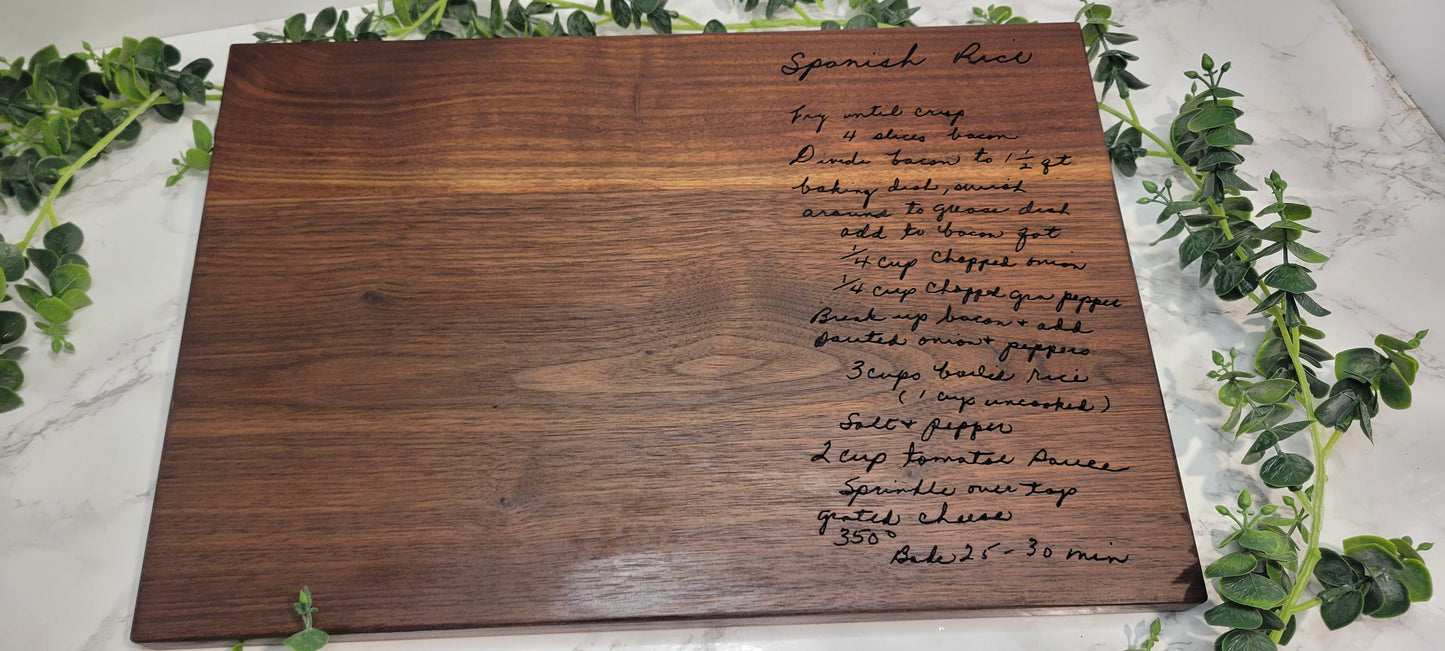 Spanish Rice
Fry until crisp
4 slices bacon
Divide bacon to 1 1/2 qt
baking dish, swish
around to grease dish
add to bacon fat
1/4 cup chopped onion
1/4 cup chopped grn pepper
Break up bacon + add
sauted onion + peppers
3 cups boiled rice
( 1 cup uncooked )
Salt + pepper
2 cup tomatoe sauce
Sprinkle over top
grated cheese
350°
Bake 25 - 30 min